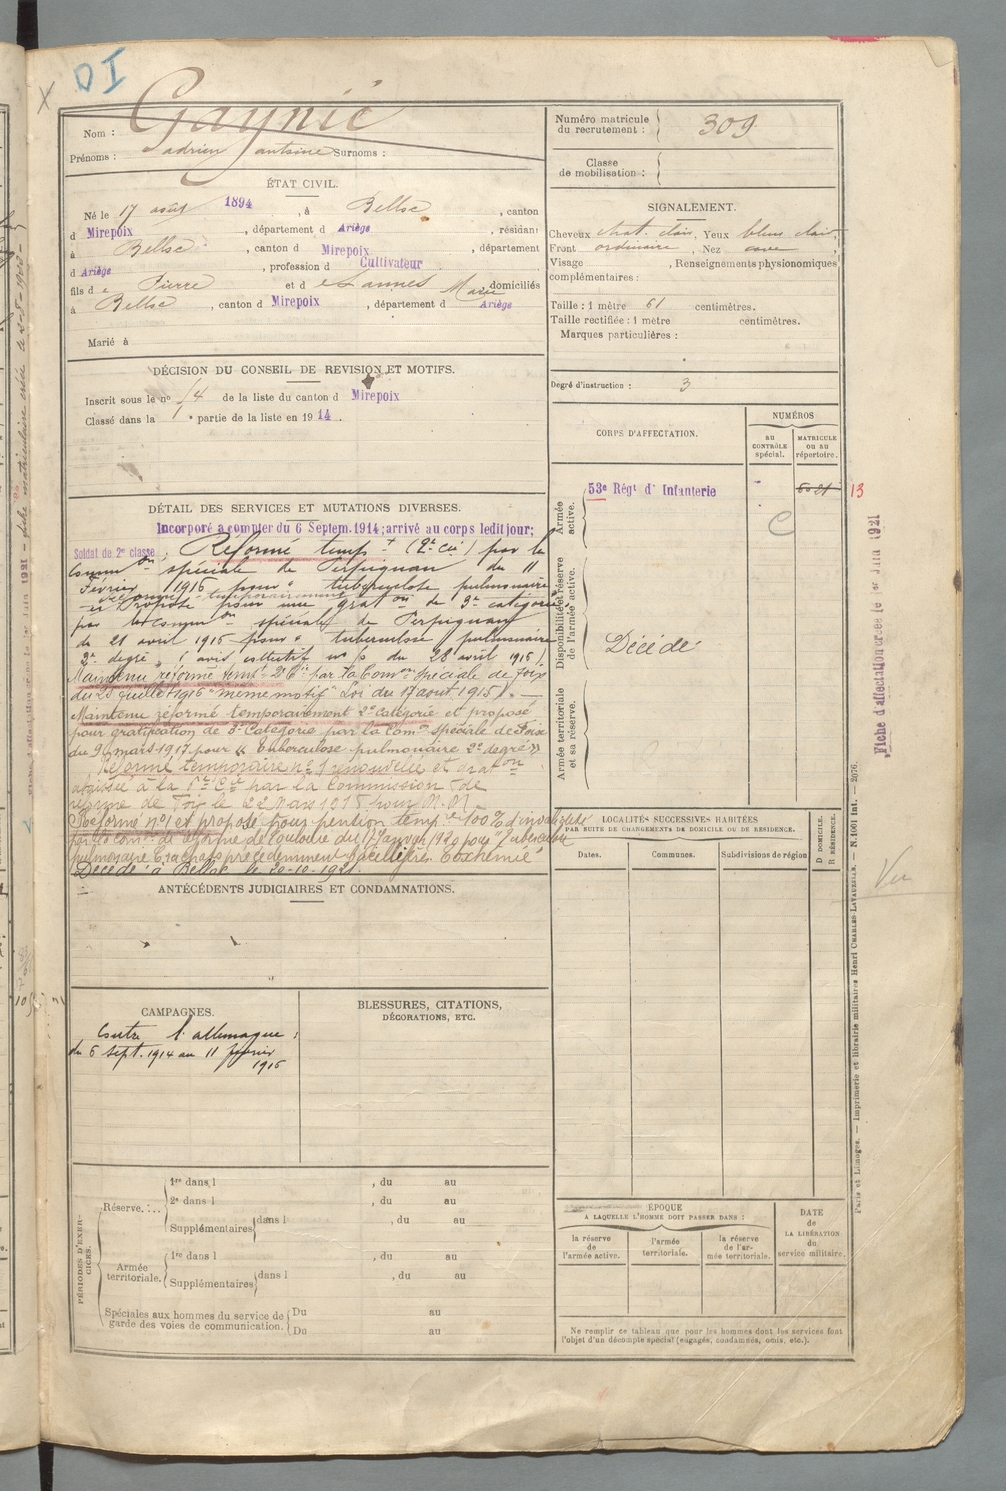 DI
Nom : Gaynié
Numéro matricule du recrutement : 309
Prénoms : adrien antoine Surnoms :
Classe de mobilisation :
ÉTAT CIVIL.
Né le 17 août 1894, à Belloc, canton
d Mirepoix, département d Ariège, résidant
à Belloc, canton d Mirepoix, département
d Ariège, profession d Cultivateur
fils de Pierre et de Lannes Marie domiciliés
à Belloc, canton d Mirepoix, département d Ariège
Marié à
SIGNALEMENT.
Cheveux chat. clair, Yeux bleus clair,
Front ordinaire, Nez cave
Visage , Renseignements physionomiques
complémentaires :
Taille : 1 mètre 61 centimètres.
Taille rectifiée : 1 mètre centimètres.
Marques particulières :
Degré d'instruction : 3
DÉCISION DU CONSEIL DE REVISION ET MOTIFS.
Inscrit sous le no 14 de la liste du canton d Mirepoix
Classé dans la 1e partie de la liste en 1914.
CORPS D'AFFECTATION.
NUMÉROS
AU CONTRÔLE spécial.
MATRICULE OU AU répertoire.
Armée active.
53e Régt d' Infanterie
13
Disponibilité et réserve de l'armée active.
Décédé
Armée territoriale et sa réserve.
DÉTAIL DES SERVICES ET MUTATIONS DIVERSES.
Incorporé à compter du 6 Septem. 1914; arrivé au corps ledit jour;
Soldat de 2e classe; Réformé tempt (2e cie) par la
Common spéciale de Perpignan du 11
Février 1915 pour "tuberculose pulmonaire"
Proposé pour une graton de 3e catégorie
par la Common spéciale de Perpignan
du 21 avril 1915 pour "tuberculose pulmonaire
2e degré" ( avis du 28 avril 1915)
Maintenu réformé tempt 2e Cie par la Comon Spéciale de Foix
du 20 juillet 1915 "même motif" Loi du 17 août 1915).
Maintenu réformé temporairement 2e catégorie et proposé
pour gratification de 3e Catégorie par la Comon spéciale de Foix
du 9 mars 1917 pour « tuberculose pulmonaire 2e degré »
Réformé temporaire no 1 renouvelée et graton
à la 1re Cie par la Commission de
réforme de Foix le 22 Mars 1918 pour
Réformé no 1 et proposé pour pention tempre 100% d'invalidité
par la comon de réforme de Toulouse du 17 Janvier 1920 pour "Tuberculose
pulmonaire Crachats précédemment bacillifère
Décédé à Belloc le 20-10-1921.
ANTÉCÉDENTS JUDICIAIRES ET CONDAMNATIONS.
LOCALITÉS SUCCESSIVES HABITÉES
PAR SUITE DE CHANGEMENTS DE DOMICILE OU DE RÉSIDENCE.
Dates.
Communes.
Subdivisions de région
D DOMICILE.
R RÉSIDENCE.
CAMPAGNES.
Contre l'allemagne :
du 6 sept. 1914 au 11 février
1915
BLESSURES, CITATIONS,
DÉCORATIONS, ETC.
PÉRIODES D'EXERCICES.
Réserve.
1re dans l , du au
2e dans l , du au
Supplémentaires dans l , du au
Armée territoriale.
1re dans l , du au
Supplémentaires dans l , du au
Spéciales aux hommes du service de
garde des voies de communication.
Du au
Du au
ÉPOQUE
A LAQUELLE L'HOMME DOIT PASSER DANS :
la réserve de l'armée active.
l'armée territoriale.
la réserve de l'armée territoriale.
DATE de LA LIBÉRATION du service militaire.
Ne remplir ce tableau que pour les hommes dont les services font
l'objet d'un décompte spécial (engagés, condamnés, omis, etc.).
Paris et Limoges. — Imprimerie et librairie militaires Henri CHARLES-LAVAUZELLE. — N. 1001 int. — 2076.
Fiche d'affectation créée le 1er Juin 1921
Vu